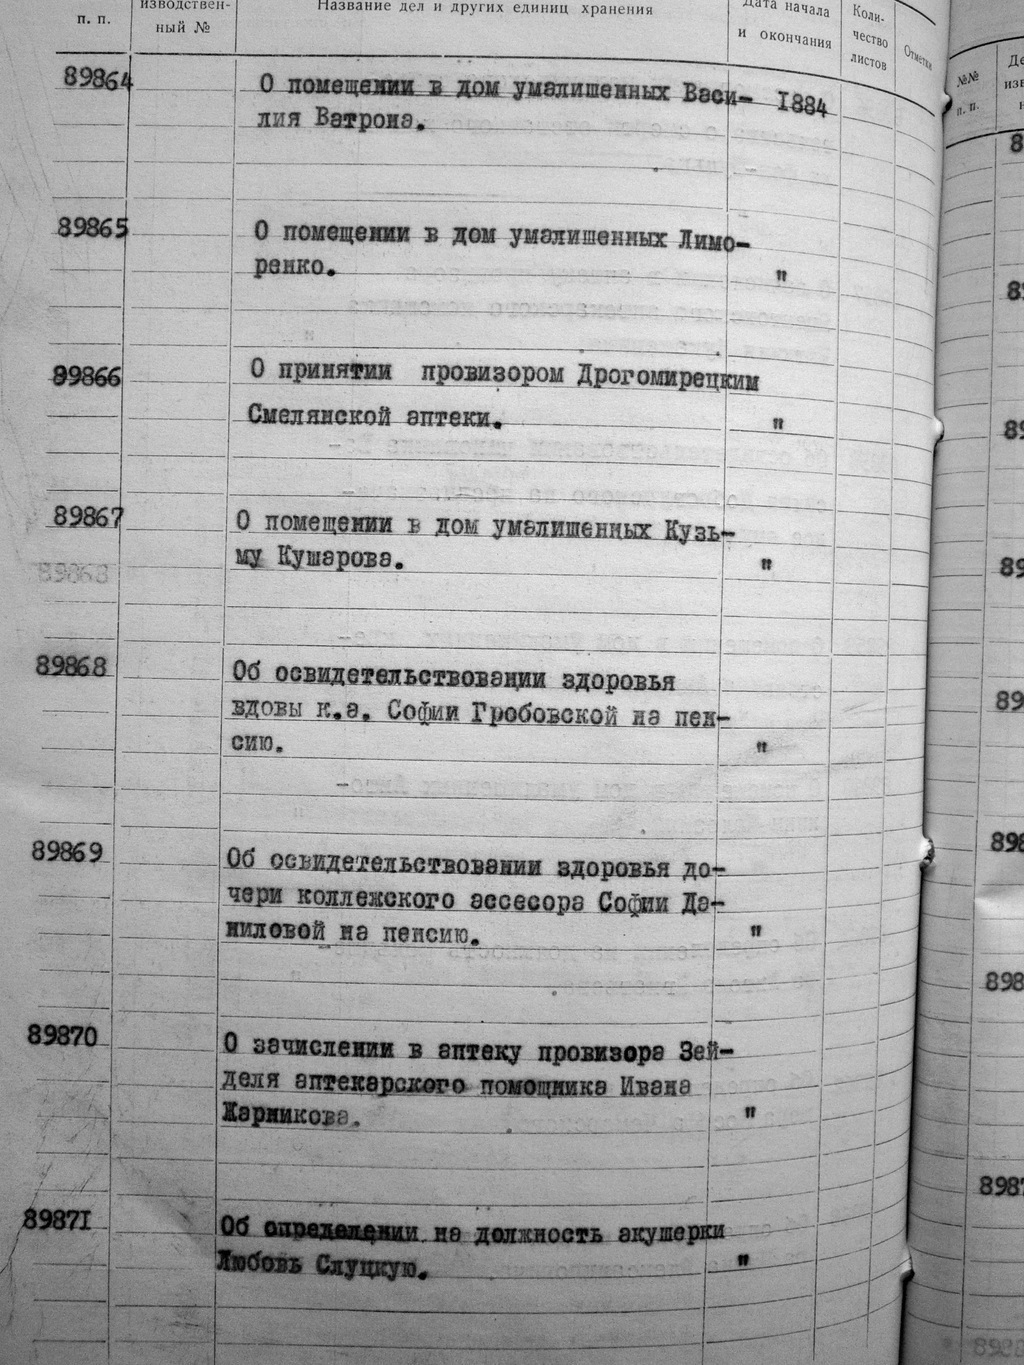 п. п.
изводствен-
ный №
Название дел и других единиц хранения
Дата начала
и окончания
Коли-
чество
листов
Отметки
89864 О помещении в дом умалишенных Васи- 1884
лия Ватрона.
89865 О помещении в дом умалишенных Лимо-
ренко. "
89866 О принятии провизором Дрогомирецким
Смелянской аптеки. "
89867 О помещении в дом умалишенных Кузь-
му Кушарова. "
89868
89868 Об освидетельствовании здоровья
вдовы к.а. Софии Гробовской на пен-
сию. "
89869 Об освидетельствовании здоровья до-
чери коллежского ассесора Софии Да-
ниловой на пенсию. "
89870 О зачислении в аптеку провизора Зей-
деля аптекарского помощника Ивана
Жарникова. "
89871 Об определении на должность акушерки
Любовь Слуцкую. "
№№
п. п.